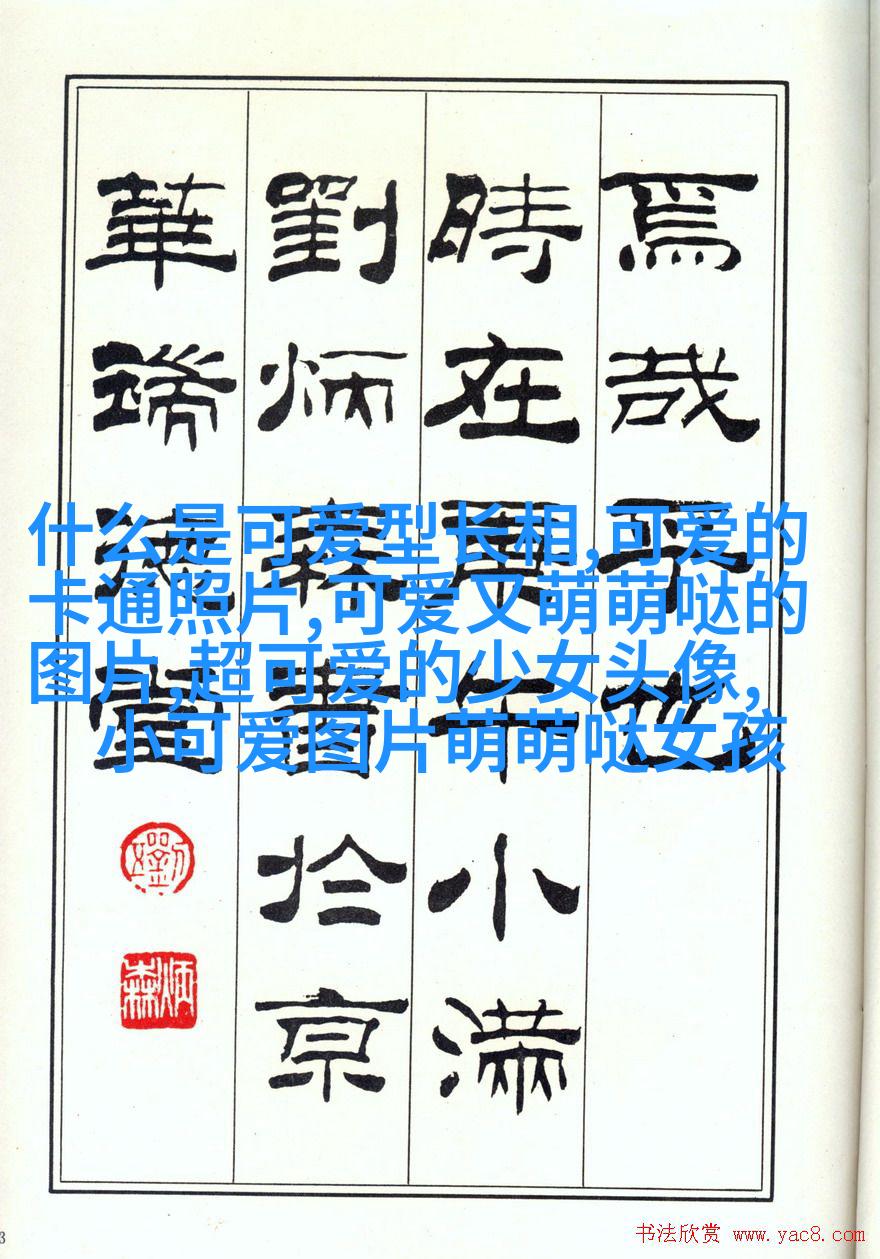 焉哉乎也
時在庚午小滿
劉炳森書於京
華
什么是可爱型长相,可爱的
卡通照片,可爱又萌萌哒的
图片,超可爱的少女头像,
小可爱图片萌萌哒女孩
炳森
3
书法欣赏 www.yac8.com